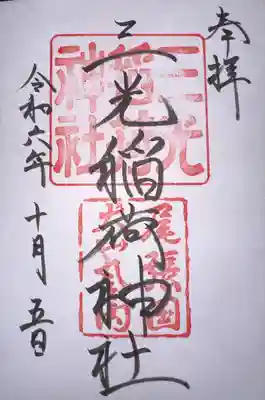 奉拝
三光稲荷神社
令和六年 十月 五日
三光
稲荷
神社